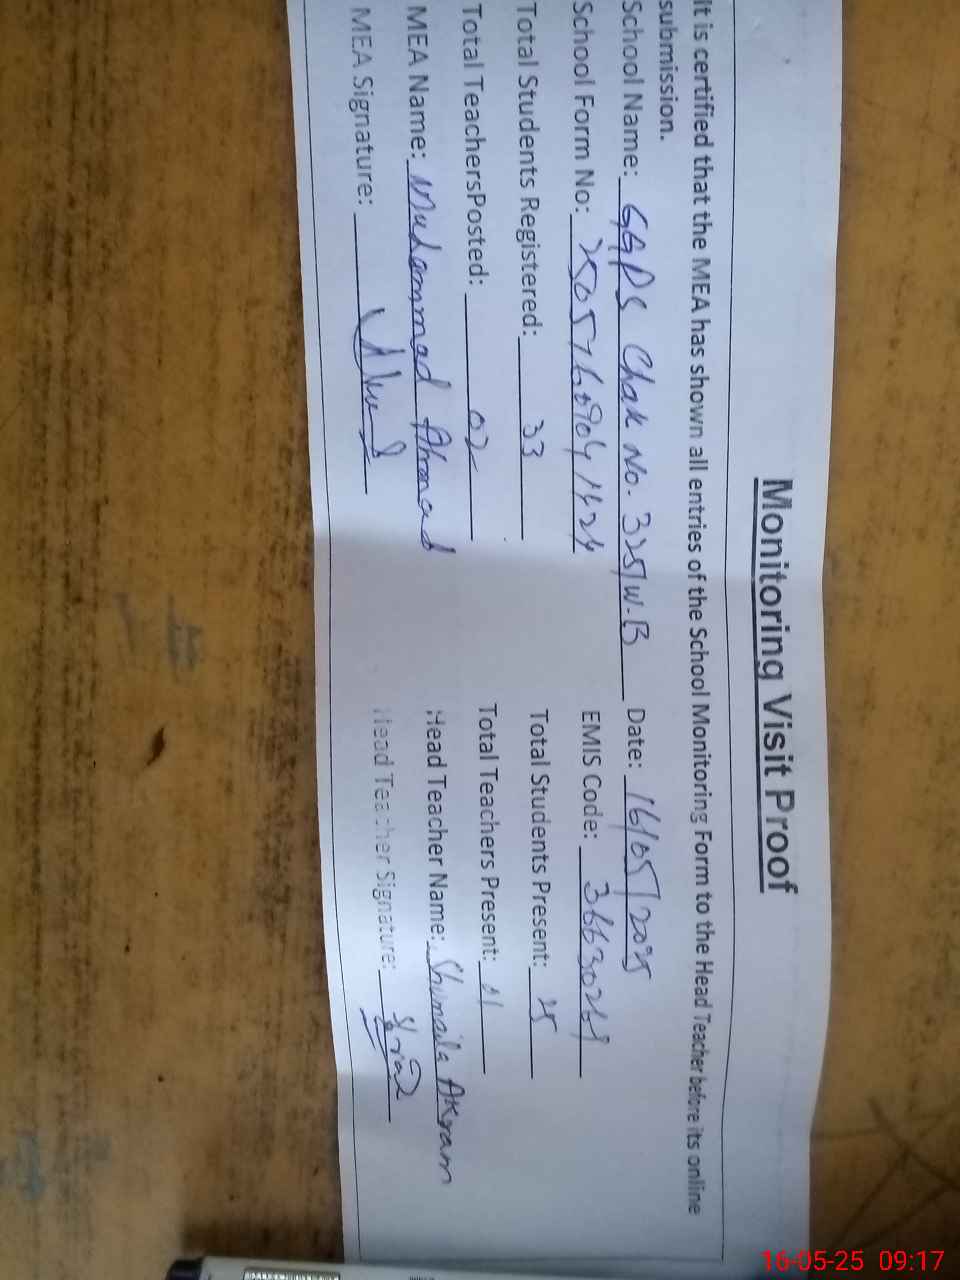 Monitoring Visit Proof
It is certified that the MEA has shown all entries of the School Monitoring Form to the Head Teacher before its online
submission.
School Name: GGPS Chak No. 325/W.B Date: 16/05/2025
School Form No: 250571609041424 EMIS Code: 36630269
Total Students Registered: 33 Total Students Present: 25
Total TeachersPosted: 02 Total Teachers Present: 01
MEA Name: Muhammad Ahmad Head Teacher Name: Shumaila Akram
MEA Signature: Head Teacher Signature:
16-05-25 09:17